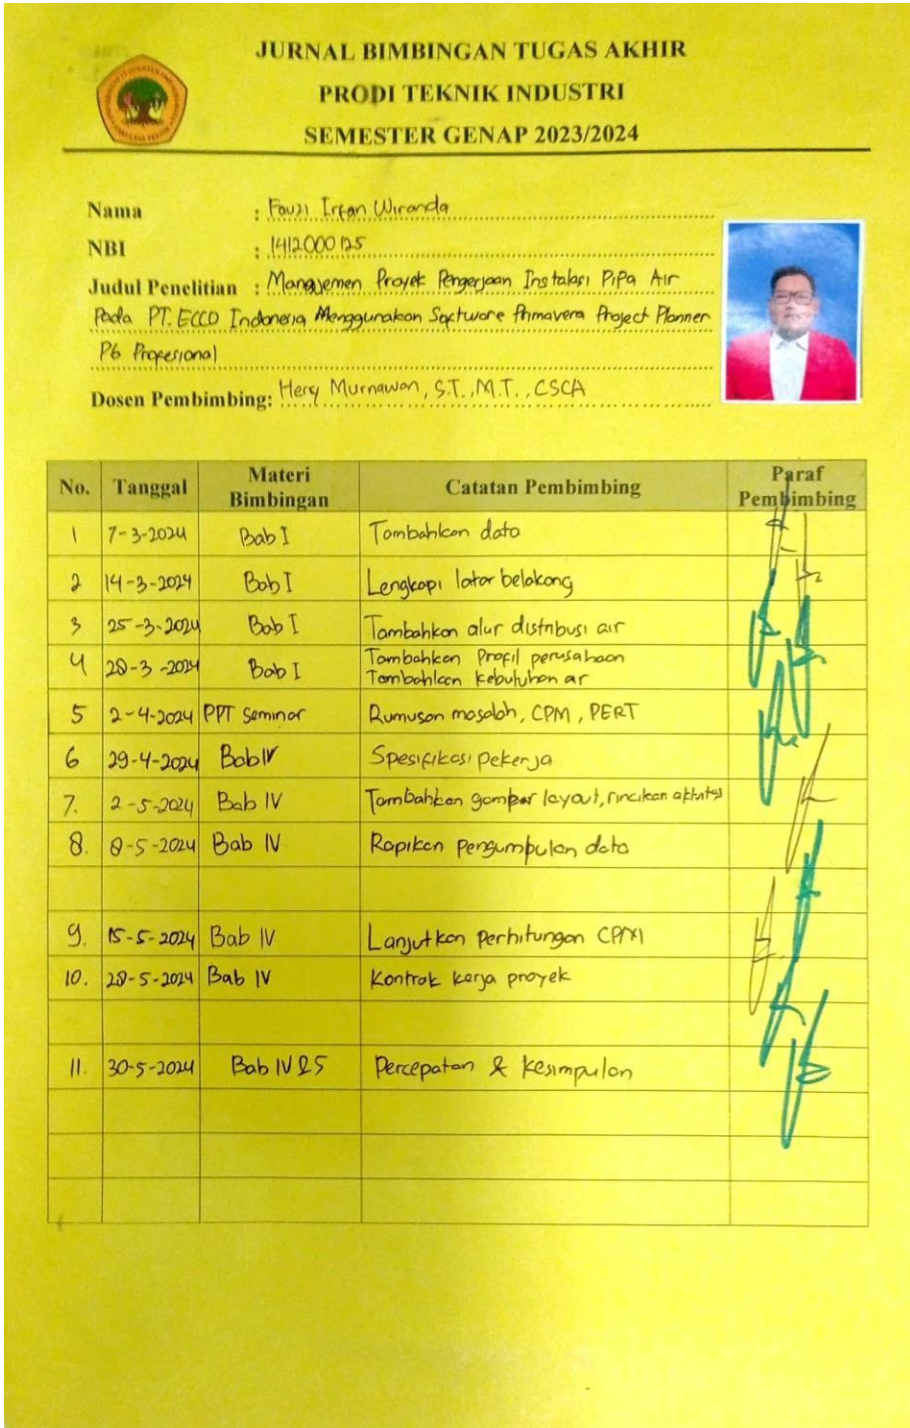 JURNAL BIMBINGAN TUGAS AKHIR
PRODI TEKNIK INDUSTRI
SEMESTER GENAP 2023/2024
Nama : Fauzi Irfan Wiranda
NBI : 1412000125
Judul Penelitian : Manajemen Proyek Pengerjaan Instalasi Pipa Air
Pada PT. ECCO Indonesia Menggunakan Software Primavera Project Planner
P6 Profesional
Dosen Pembimbing: Hery Murnawan, S.T., M.T., CSCA
No. Tanggal Materi Bimbingan Catatan Pembimbing Paraf Pembimbing
1 7-3-2024 Bab I Tambahkan data
2 14-3-2024 Bab I Lengkapi latar belakang
3 25-3-2024 Bab I Tambahkan alur distribusi air
4 28-3-2024 Bab I Tambahkan Profil perusahaan
Tambahkan kebutuhan air
5 2-4-2024 PPT Seminar Rumusan masalah, CPM, PERT
6 29-4-2024 Bab IV Spesifikasi pekerja
7. 2-5-2024 Bab IV Tambahkan gambar layout, rincikan aktivitas
8. 8-5-2024 Bab IV Rapikan pengumpulan data
9. 15-5-2024 Bab IV Lanjutkan Perhitungan CPM
10. 28-5-2024 Bab IV Kontrak kerja proyek
11. 30-5-2024 Bab IV & 5 Percepatan & kesimpulan